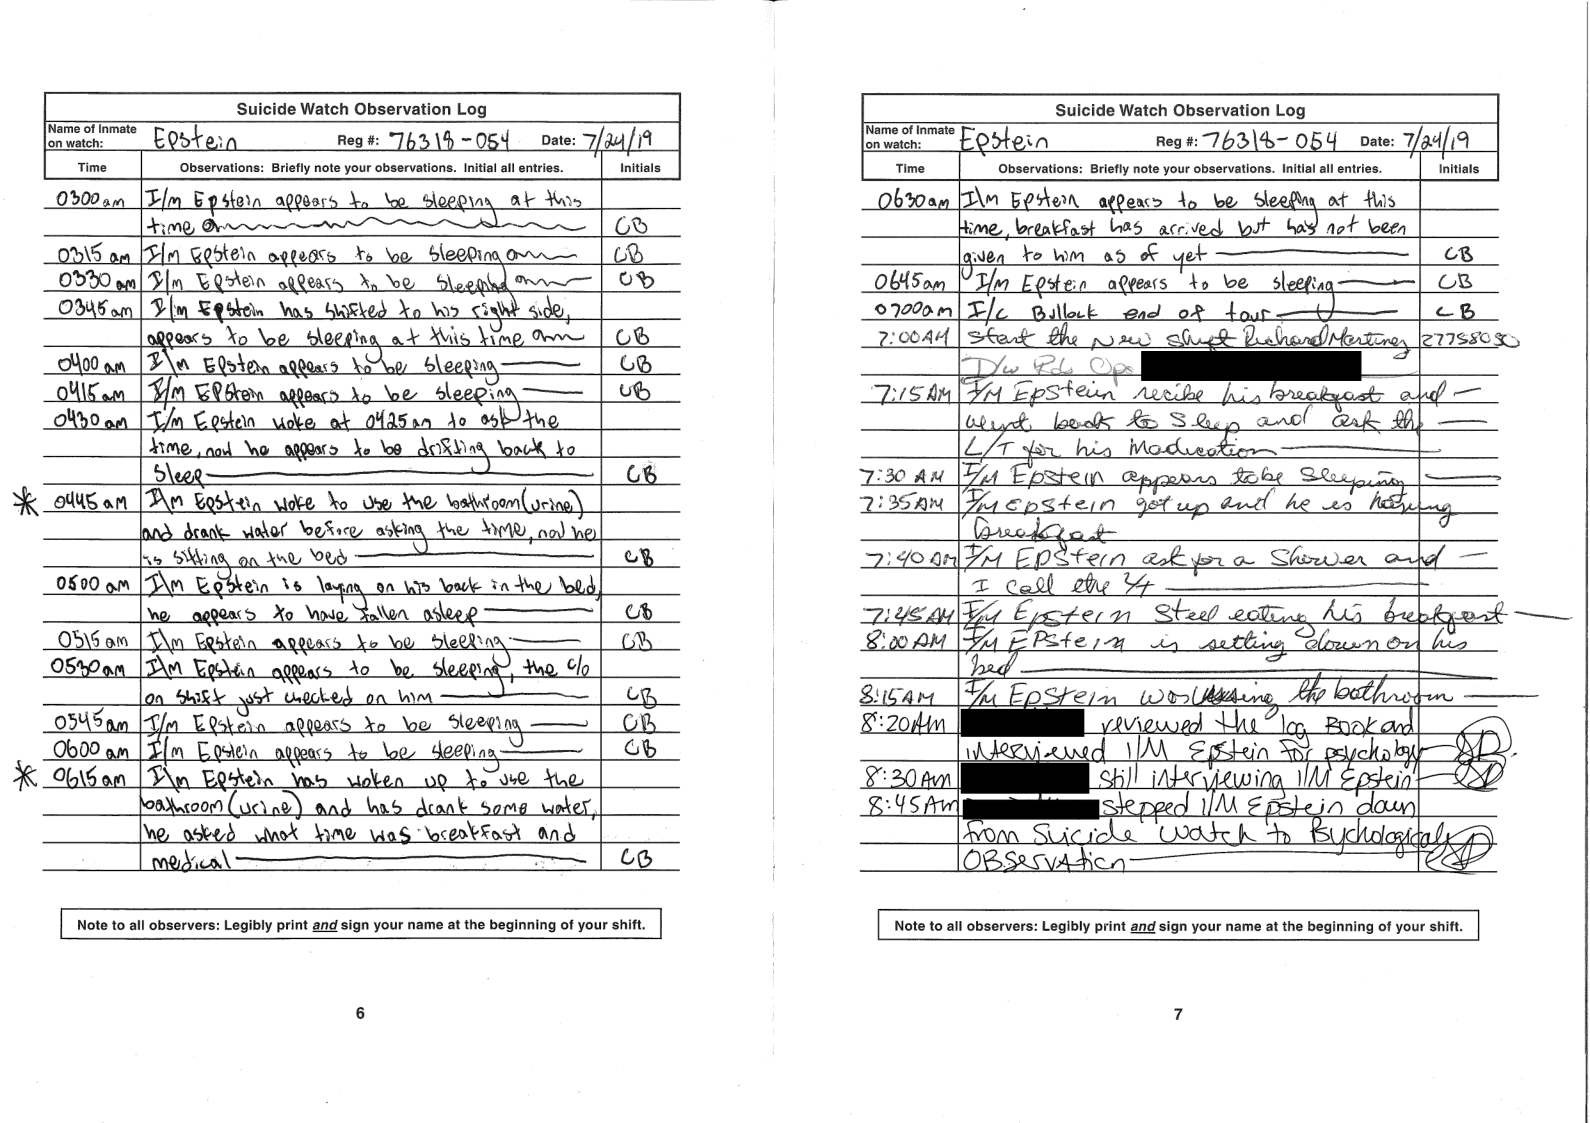 Suicide Watch Observation Log
Name of Inmate on watch: Epstein Reg #: 76318-054 Date: 7/24/19
Time Observations: Briefly note your observations. Initial all entries. Initials
0300am I/m Epstein appears to be sleeping at this
time CB
0315am I/m Epstein appears to be sleeping CB
0330am I/m Epstein appears to be sleeping CB
0345am I/m Epstein has shifted to his right side,
appears to be sleeping at this time CB
0400am I\m Epstein appears to be sleeping CB
0415am I/m Epstein appears to be sleeping CB
0430am I/m Epstein woke at 0425am to ask the
time, now he appears to be drifting back to
sleep CB
* 0445am I\m Epstein woke to use the bathroom(urine)
and drank water before asking the time, now he
is sitting on the bed CB
0500am I\m Epstein is laying on his back in the bed,
he appears to have fallen asleep CB
0515am I\m Epstein appears to be sleeping CB
0530am I\m Epstein appears to be sleeping, the c/o
on shift just checked on him CB
0545am I/m Epstein appears to be sleeping CB
0600am I/m Epstein appears to be sleeping CB
* 0615am I\m Epstein has woken up to use the
bathroom(urine) and has drank some water,
he asked what time was breakfast and
medical CB
Note to all observers: Legibly print and sign your name at the beginning of your shift.
6
Suicide Watch Observation Log
Name of Inmate on watch: Epstein Reg #: 76318-054 Date: 7/24/19
Time Observations: Briefly note your observations. Initial all entries. Initials
0630am I\m Epstein appears to be sleeping at this
time, breakfast has arrived but has not been
given to him as of yet CB
0645am I/m Epstein appears to be sleeping CB
0700am I/c Bullock end of tour CB
7:00AM Start the New Shift Richard Martinez 27758050
D/w Rdo Ops
7:15AM I/M EPStein recibe his breakfast and
went back to Sleep and ask the
L/T for his Madication
7:30 AM I/M EPStein appears to be Sleeping
7:35AM I/M EPStein got up and he is having
breakfast
7:40AM I/M EPStein ask for a Shower and
I call the
7:45AM I/M Epstein Steel eating his breakfast
8:00AM I/M EPStein is setting down on his
bed
8:15AM I/M EPStein was using the bathroom
8:20AM reviewed the log Book and
interviewed I/M Epstein for psychology
8:30AM still interviewing I/M Epstein
8:45AM stepped I/M Epstein down
from Suicide Watch to Psychological
OBservation
Note to all observers: Legibly print and sign your name at the beginning of your shift.
7